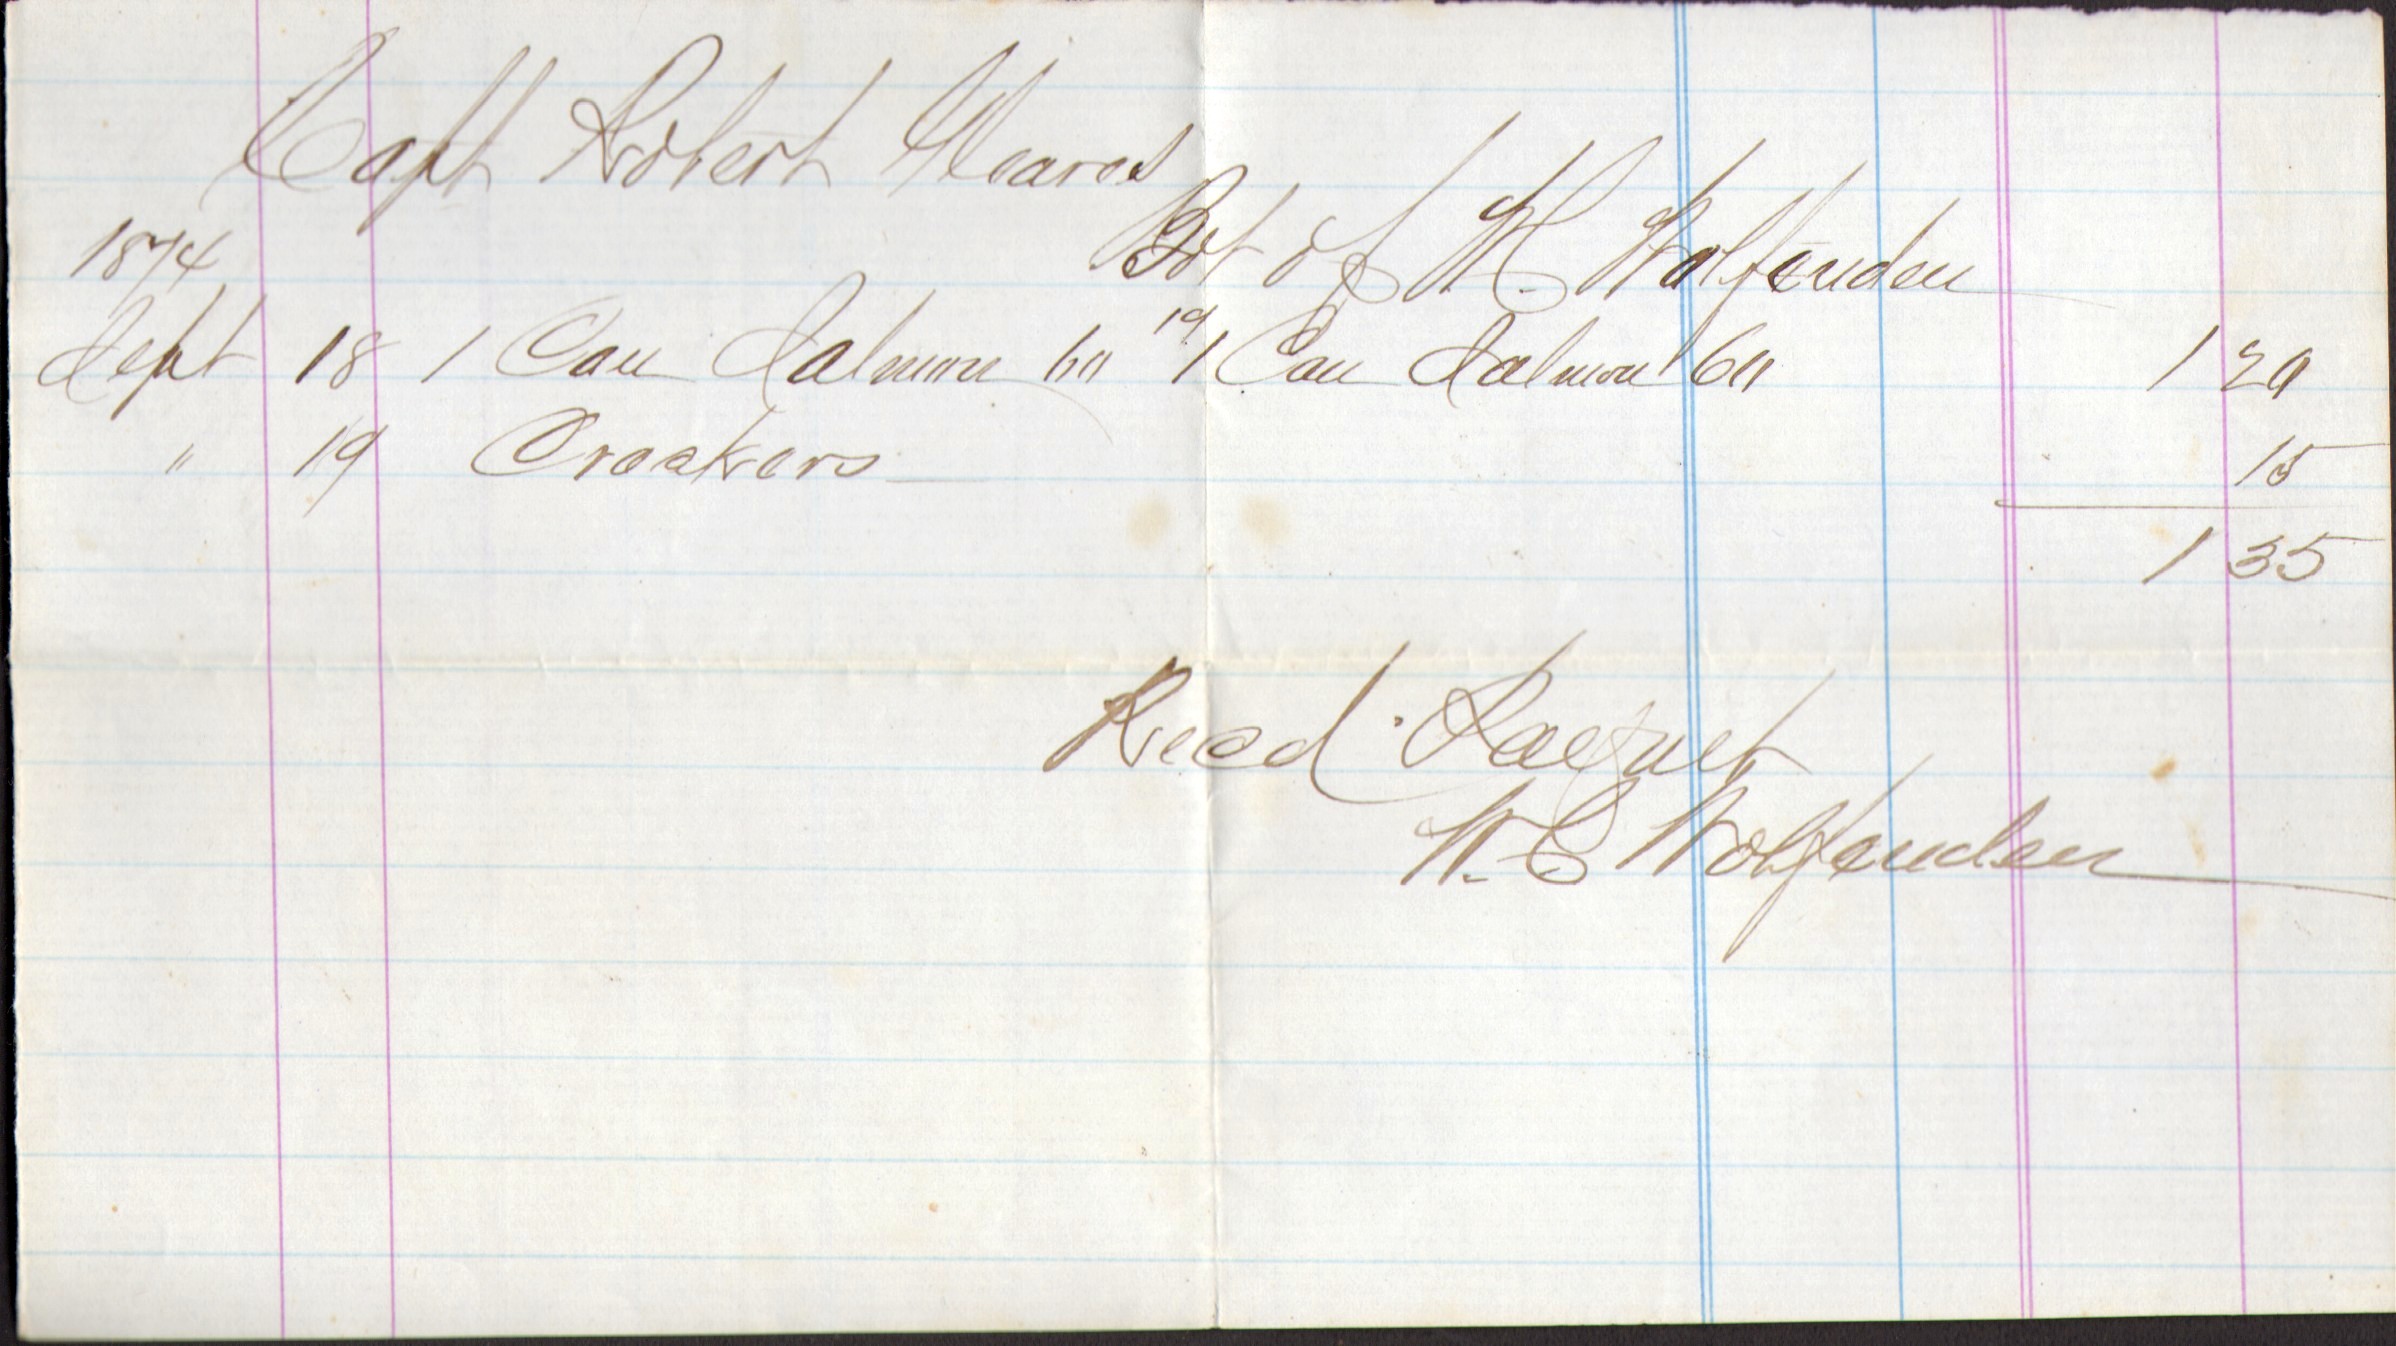 Capt Robert Mears
1874 Bot of W. Wolfenden
Sept 18 1 Can Salmon 60 19 1 Can Salmon 60 1 20
" 19 Crackers 15
1 35
Recd Payment
W. Wolfenden